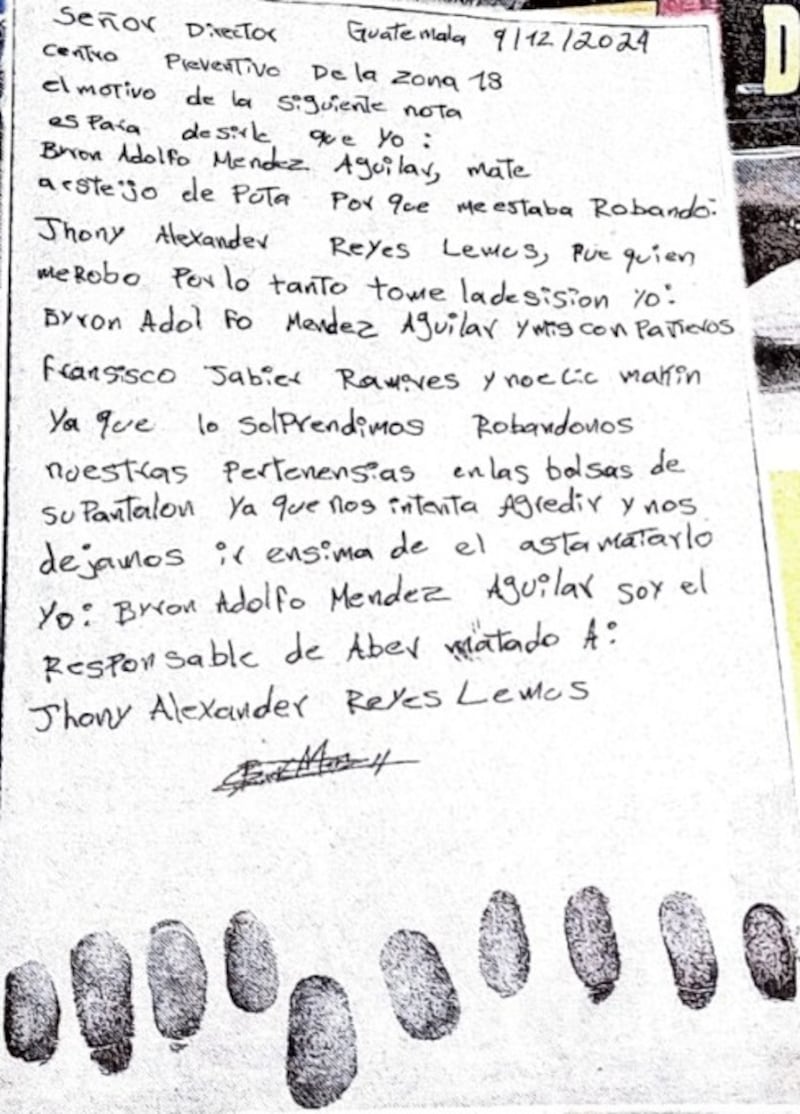 Señor Director Guatemala 9/12/2024
centro Preventivo De la zona 18
el motivo de la siguiente nota
es Para desirle que yo:
Byron Adolfo Mendez Aguilar, mate
a este ijo de Puta Por que me estaba Robando:
Jhony Alexander Reyes Lemus, fue quien
me Robo Por lo tanto tome la desision yo:
Byron Adolfo Mendez Aguilar y mis con Pañeros
fransisco Jabier Ramires y noe Cic makin
Ya que lo solPrendimos Robandonos
nuestras Pertenensias en las bolsas de
su Pantalon Ya que nos intenta Agredir y nos
dejamos ir ensima de el asta matarlo
Yo: Byron Adolfo Mendez Aguilar soy el
Responsable de Aber matado A:
Jhony Alexander Reyes Lemus
D